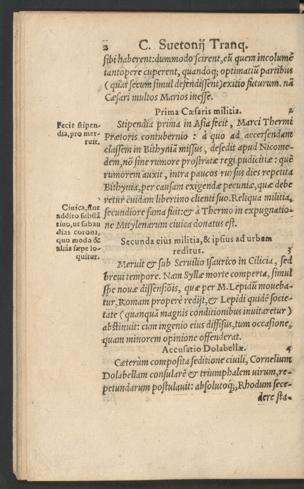 2 C. Suetonij Tranq.
sibi haberent: dummodo scirent, eū quem incolumē
tantopere cuperent, quandoq; optimatiū partibus
(quas secum simul defendissent) exitio futurum. nā
Cæsari multos Marios inesse.
Prima Cæsaris militia. 2
Fecit stipen-
dia, pro mer-
ruit.
Stipendia prima in Asia fecit, Marci Thermi
Prætoris contubernio: à quo ad accersendam
classem in Bithyniā missus, desedit apud Nicome-
dem, nō sine rumore prostratæ regi pudicitiæ: quē
rumorem auxit, intra paucos rursus dies repetita
Bithynia, per causam exigendæ pecuniæ, quæ debe
retur cuidam libertino clienti suo. Reliqua militia,
secundiore fama fuit: & à Thermo in expugnatio-
ne Mitylenarum ciuica donatus est.
Ciuica, sine
addito substā
tiuo, ut subau
dias corona,
quo modo &
alias sæpe lo-
quitur.
Secunda eius militia, & ipsius ad urbem
reditus. 3
Meruit & sub Seruilio Isaurico in Cilicia, sed
breui tempore. Nam Syllæ morte comperta, simul
spe nouæ dissensiōis, quæ per M. Lepidū mouebā-
tur, Romam propere redijt, & Lepidi quidē socie-
tate (quanquā magnis conditionibus inuitaretur)
abstinuit: cum ingenio eius diffisus, tum occasione,
quam minorem opinione offenderat.
Accusatio Dolabellæ. 4
Cæterùm composita seditione ciuili, Cornelium
Dolabellam consularē & triumphalem uirum, re-
petundarum postulauit: absolutoq;, Rhodum sece-
dere sta-